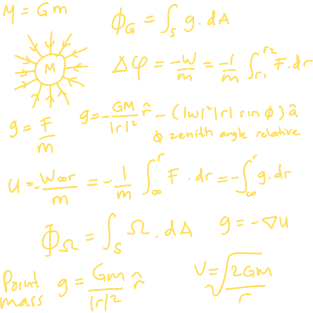 M = Gm
ϕ_G = ∫_S g.dA
M
Δφ = -W/m = -1/m ∫_{r₁}^{r₂} F.dr
g = F/m
g = -GM/|r|² r̂ - (|w|²|r| sin ϕ) â
ϕ zenith angle relative
u = -W∞r/m = -1/m ∫_∞^r F.dr = -∫_∞^r g.dr
Φ_Ω = ∫_S Ω.dA g = -∇u
Point mass g = Gm/|r|² r̂
v = √(2Gm/r)